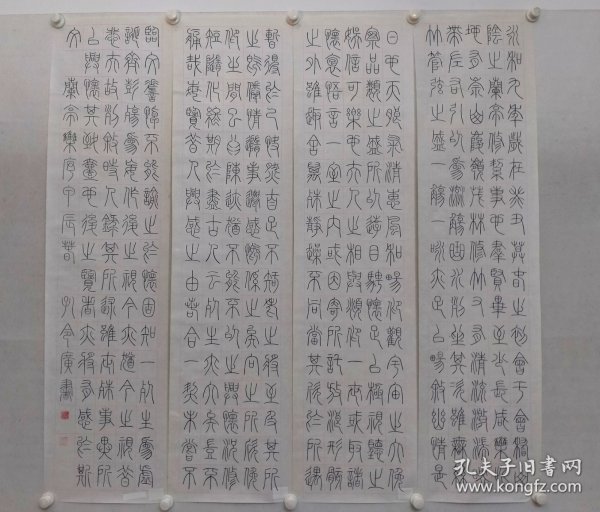 永和九年歲在癸丑暮春之初會于會稽山
陰之蘭亭修禊事也羣賢畢至少長咸集此
地有崇山峻領茂林修竹又有清流激湍映
帶左右引以為流觴曲水列坐其次雖無絲
竹管弦之盛一觴一詠亦足以暢敘幽情是
日也天朗氣清惠風和暢仰觀宇宙之大俯
察品類之盛所以遊目騁懷足以極視聽之
娛信可樂也夫人之相與俯仰一世或取諸
懷抱悟言一室之內或因寄所託放浪形骸
之外雖趣舍萬殊靜躁不同當其欣於所遇
暫得於己快然自足不知老之將至及其所
之既倦情隨事遷感慨係之矣向之所欣俛
仰之間以為陳迹猶不能不以之興懷況修
短隨化終期於盡古人云死生亦大矣豈不
痛哉每覽昔人興感之由若合一契未嘗不
臨文嗟悼不能喻之於懷固知一死生為虛
誕齊彭殤為妄作後之視今亦猶今之視昔
悲夫故列敘時人錄其所述雖世殊事異所
以興懷其致一也後之覽者亦將有感於斯
文 蘭亭集序 甲辰春 孔令廣書
孔夫子旧书网
www.kongfz.com